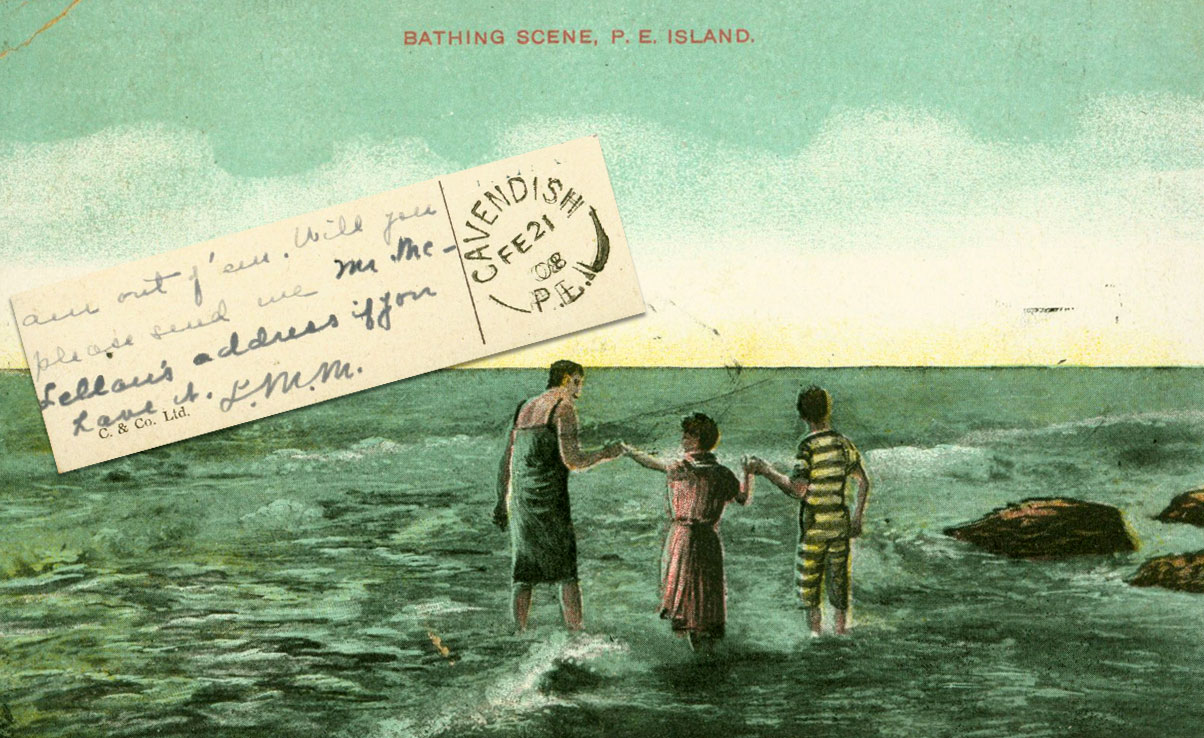 BATHING SCENE, P. E. ISLAND.
am out of 'em. Will you
please send me Mr. Mc-
Lellan's address if you
have it. L.M.M.
C. & Co. Ltd.
CAVENDISH
FE 21
08
P.E.I.